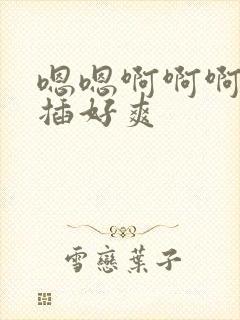 嗯嗯啊啊啊
插好爽
雪戀葉子